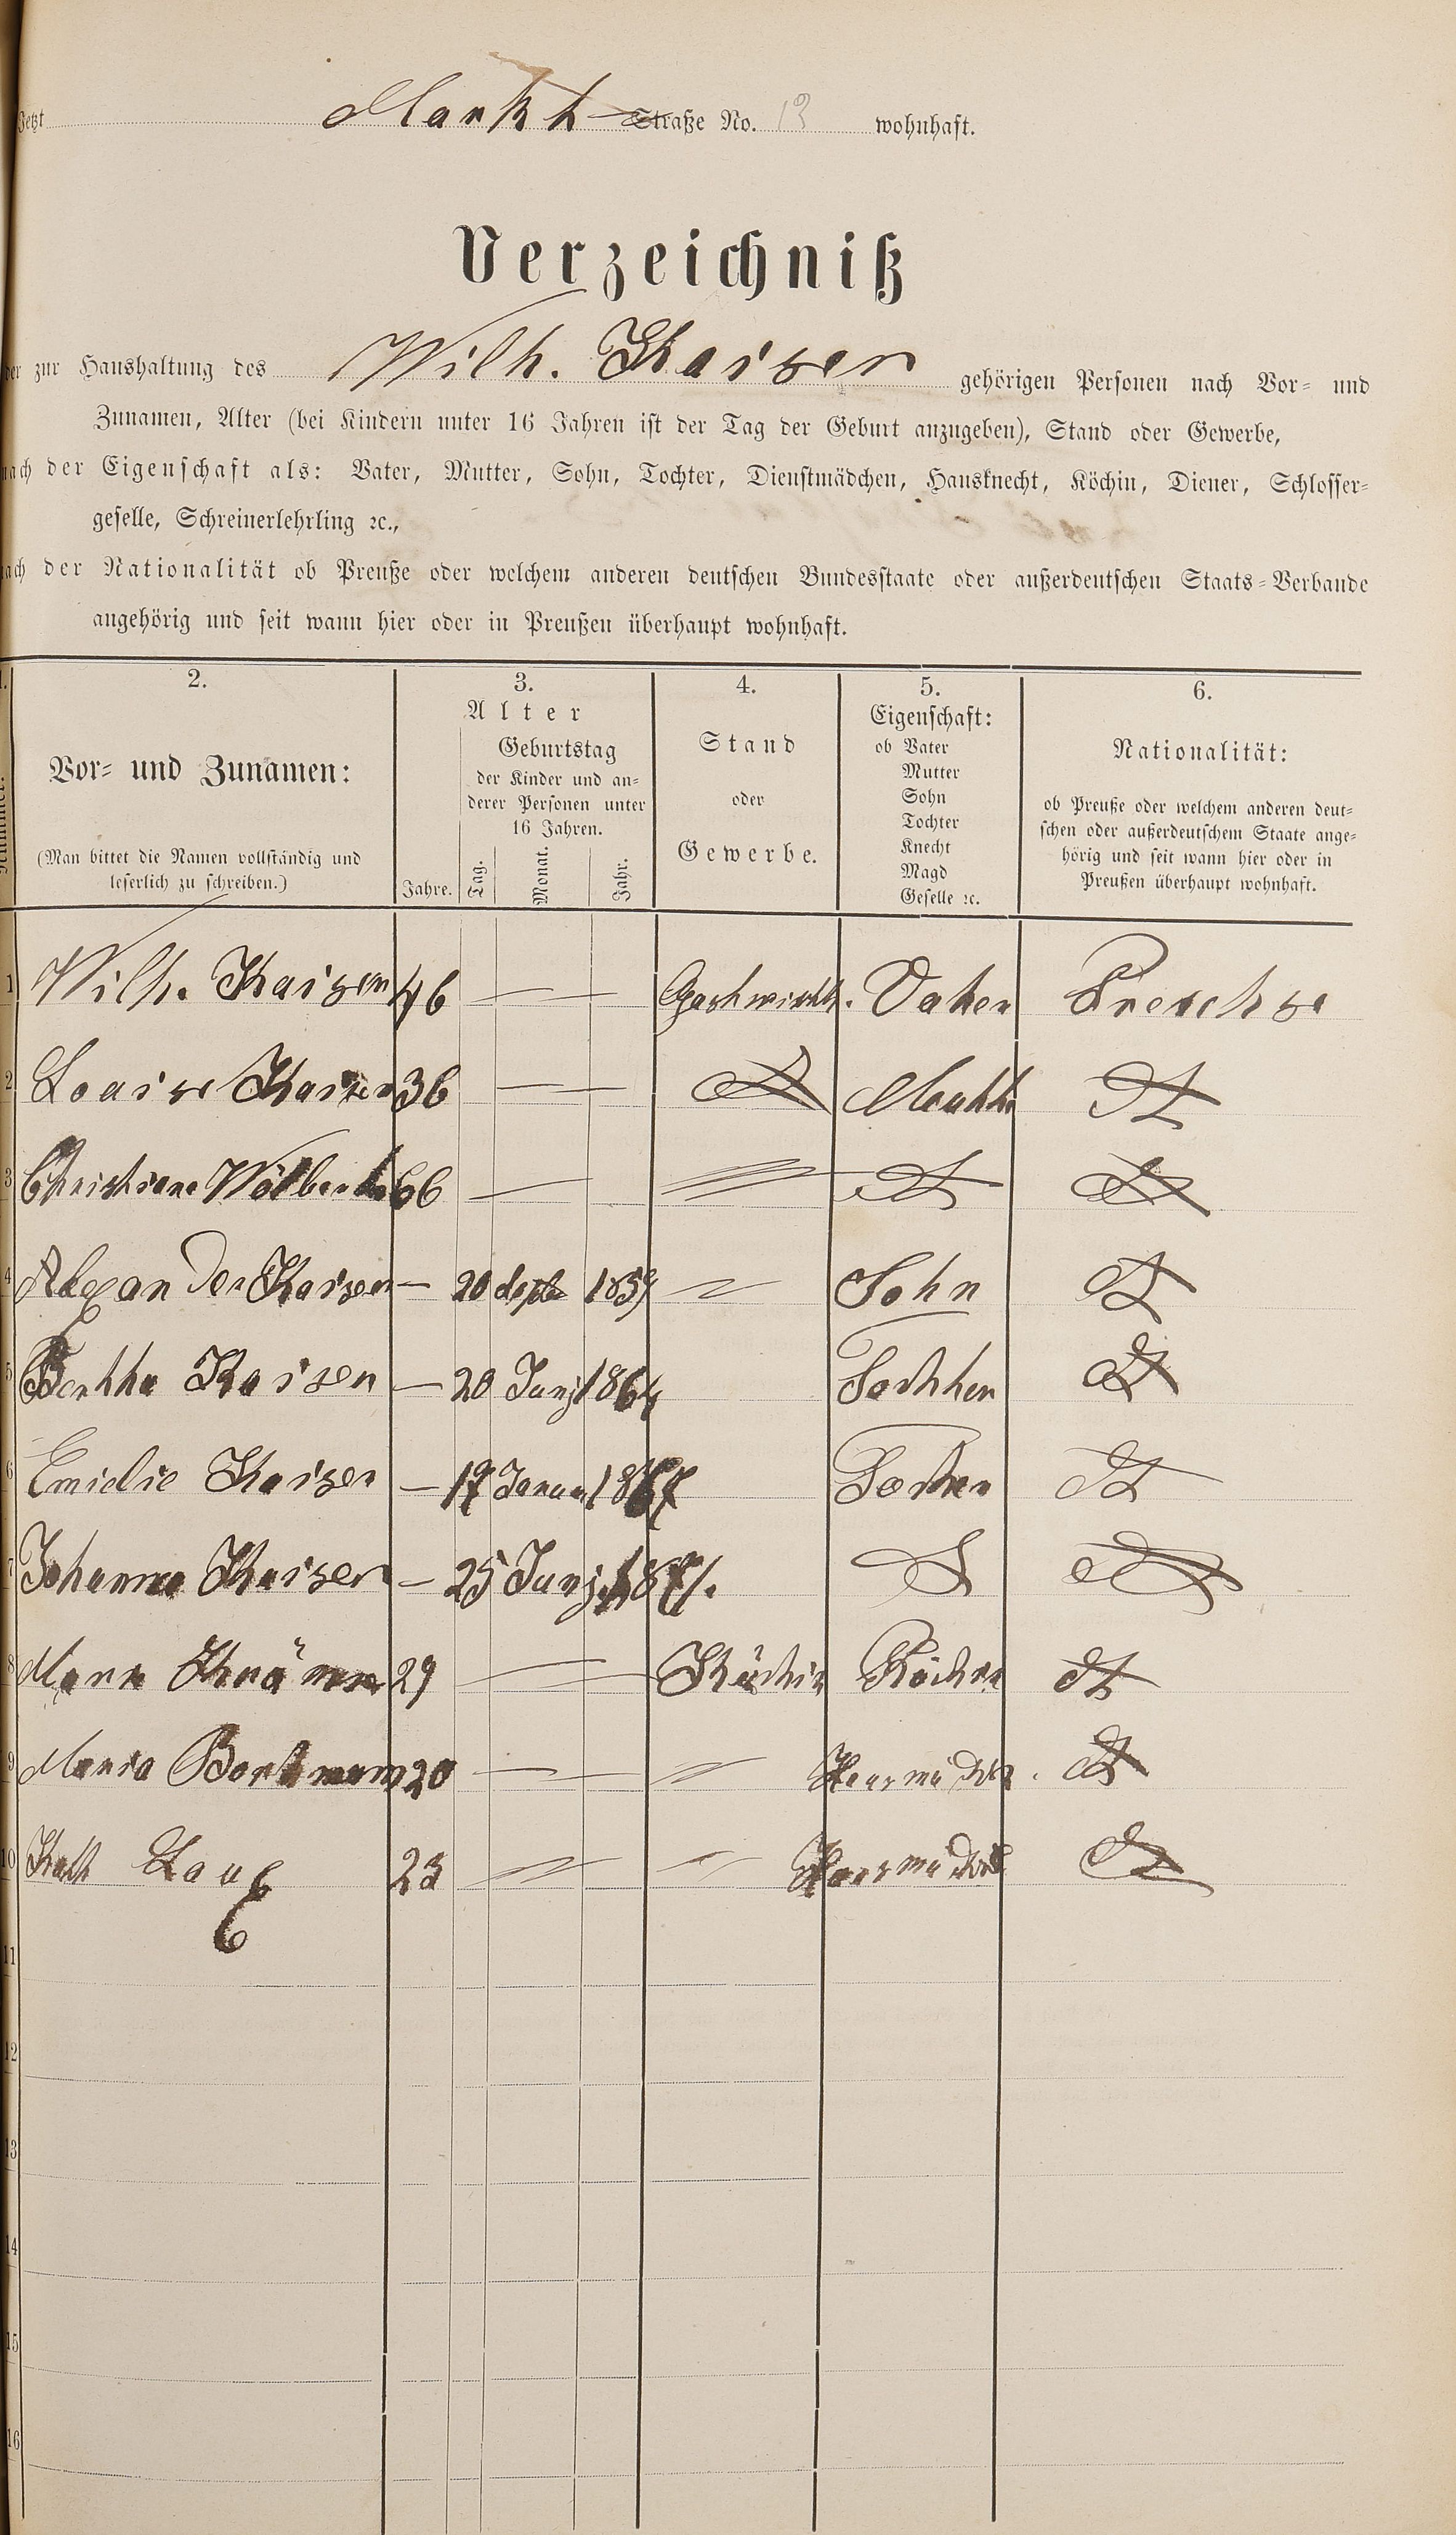 Jetzt Markt Straße No. 13 wohnhaft.
Verzeichniß
der zur Haushaltung des Wilh. Kaiser gehörigen Personen nach Vor- und
Zunamen, Alter (bei Kindern unter 16 Jahren ist der Tag der Geburt anzugeben), Stand oder Gewerbe,
nach der Eigenschaft als: Vater, Mutter, Sohn, Tochter, Dienstmädchen, Hausknecht, Köchin, Diener, Schlosser-
geselle, Schreinerlehrling ꝛc.,
nach der Nationalität ob Preuße oder welchem anderen deutschen Bundesstaate oder außerdeutschen Staats-Verbande
angehörig und seit wann hier oder in Preußen überhaupt wohnhaft.
1. 2. 3. 4. 5. 6.
Vor- und Zunamen:
(Man bittet die Namen vollständig und
leserlich zu schreiben.)
Alter
Jahre.
Geburtstag
der Kinder und an-
derer Personen unter
16 Jahren.
Tag. Monat. Jahr.
Stand
oder
Gewerbe.
Eigenschaft:
ob Vater
Mutter
Sohn
Tochter
Knecht
Magd
Geselle ꝛc.
Nationalität:
ob Preuße oder welchem anderen deut-
schen oder außerdeutschem Staate ange-
hörig und seit wann hier oder in
Preußen überhaupt wohnhaft.
1 Wilh. Kaiser 46 — Gastwirth. Vater
2 Louise Kaiser 36 — Mutter
3 Christiane 66 —
4 Alexander Kaiser — 20 Sept 1859 Sohn
5 Bertha Kaiser — 20 Juni 1864 Tochter
6 Emielie Kaiser — 17 Januar 1867 Tochter
7 Johanna Kaiser — 25 Juni 1871.
8 29 — Köchin Köchin
9 Maria 20 — Hausmädch.
10 Kath Lang 23 Hausmädch
11
12
13
14
15
16